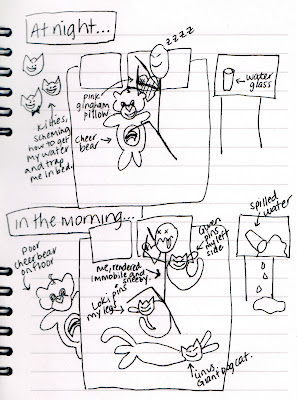 At night...
zzzz
water
glass
pink
gingham
pillow
Cheer
bear
Kitties,
scheming
how to get
my water
and trap
me in bed.
in the morning...
spilled
water
Poor
cheer bear
on floor
me, rendered
immobile and
sneezy.
pins
my left
side
Loki pins
my legs
Linus,
Giant dog cat.